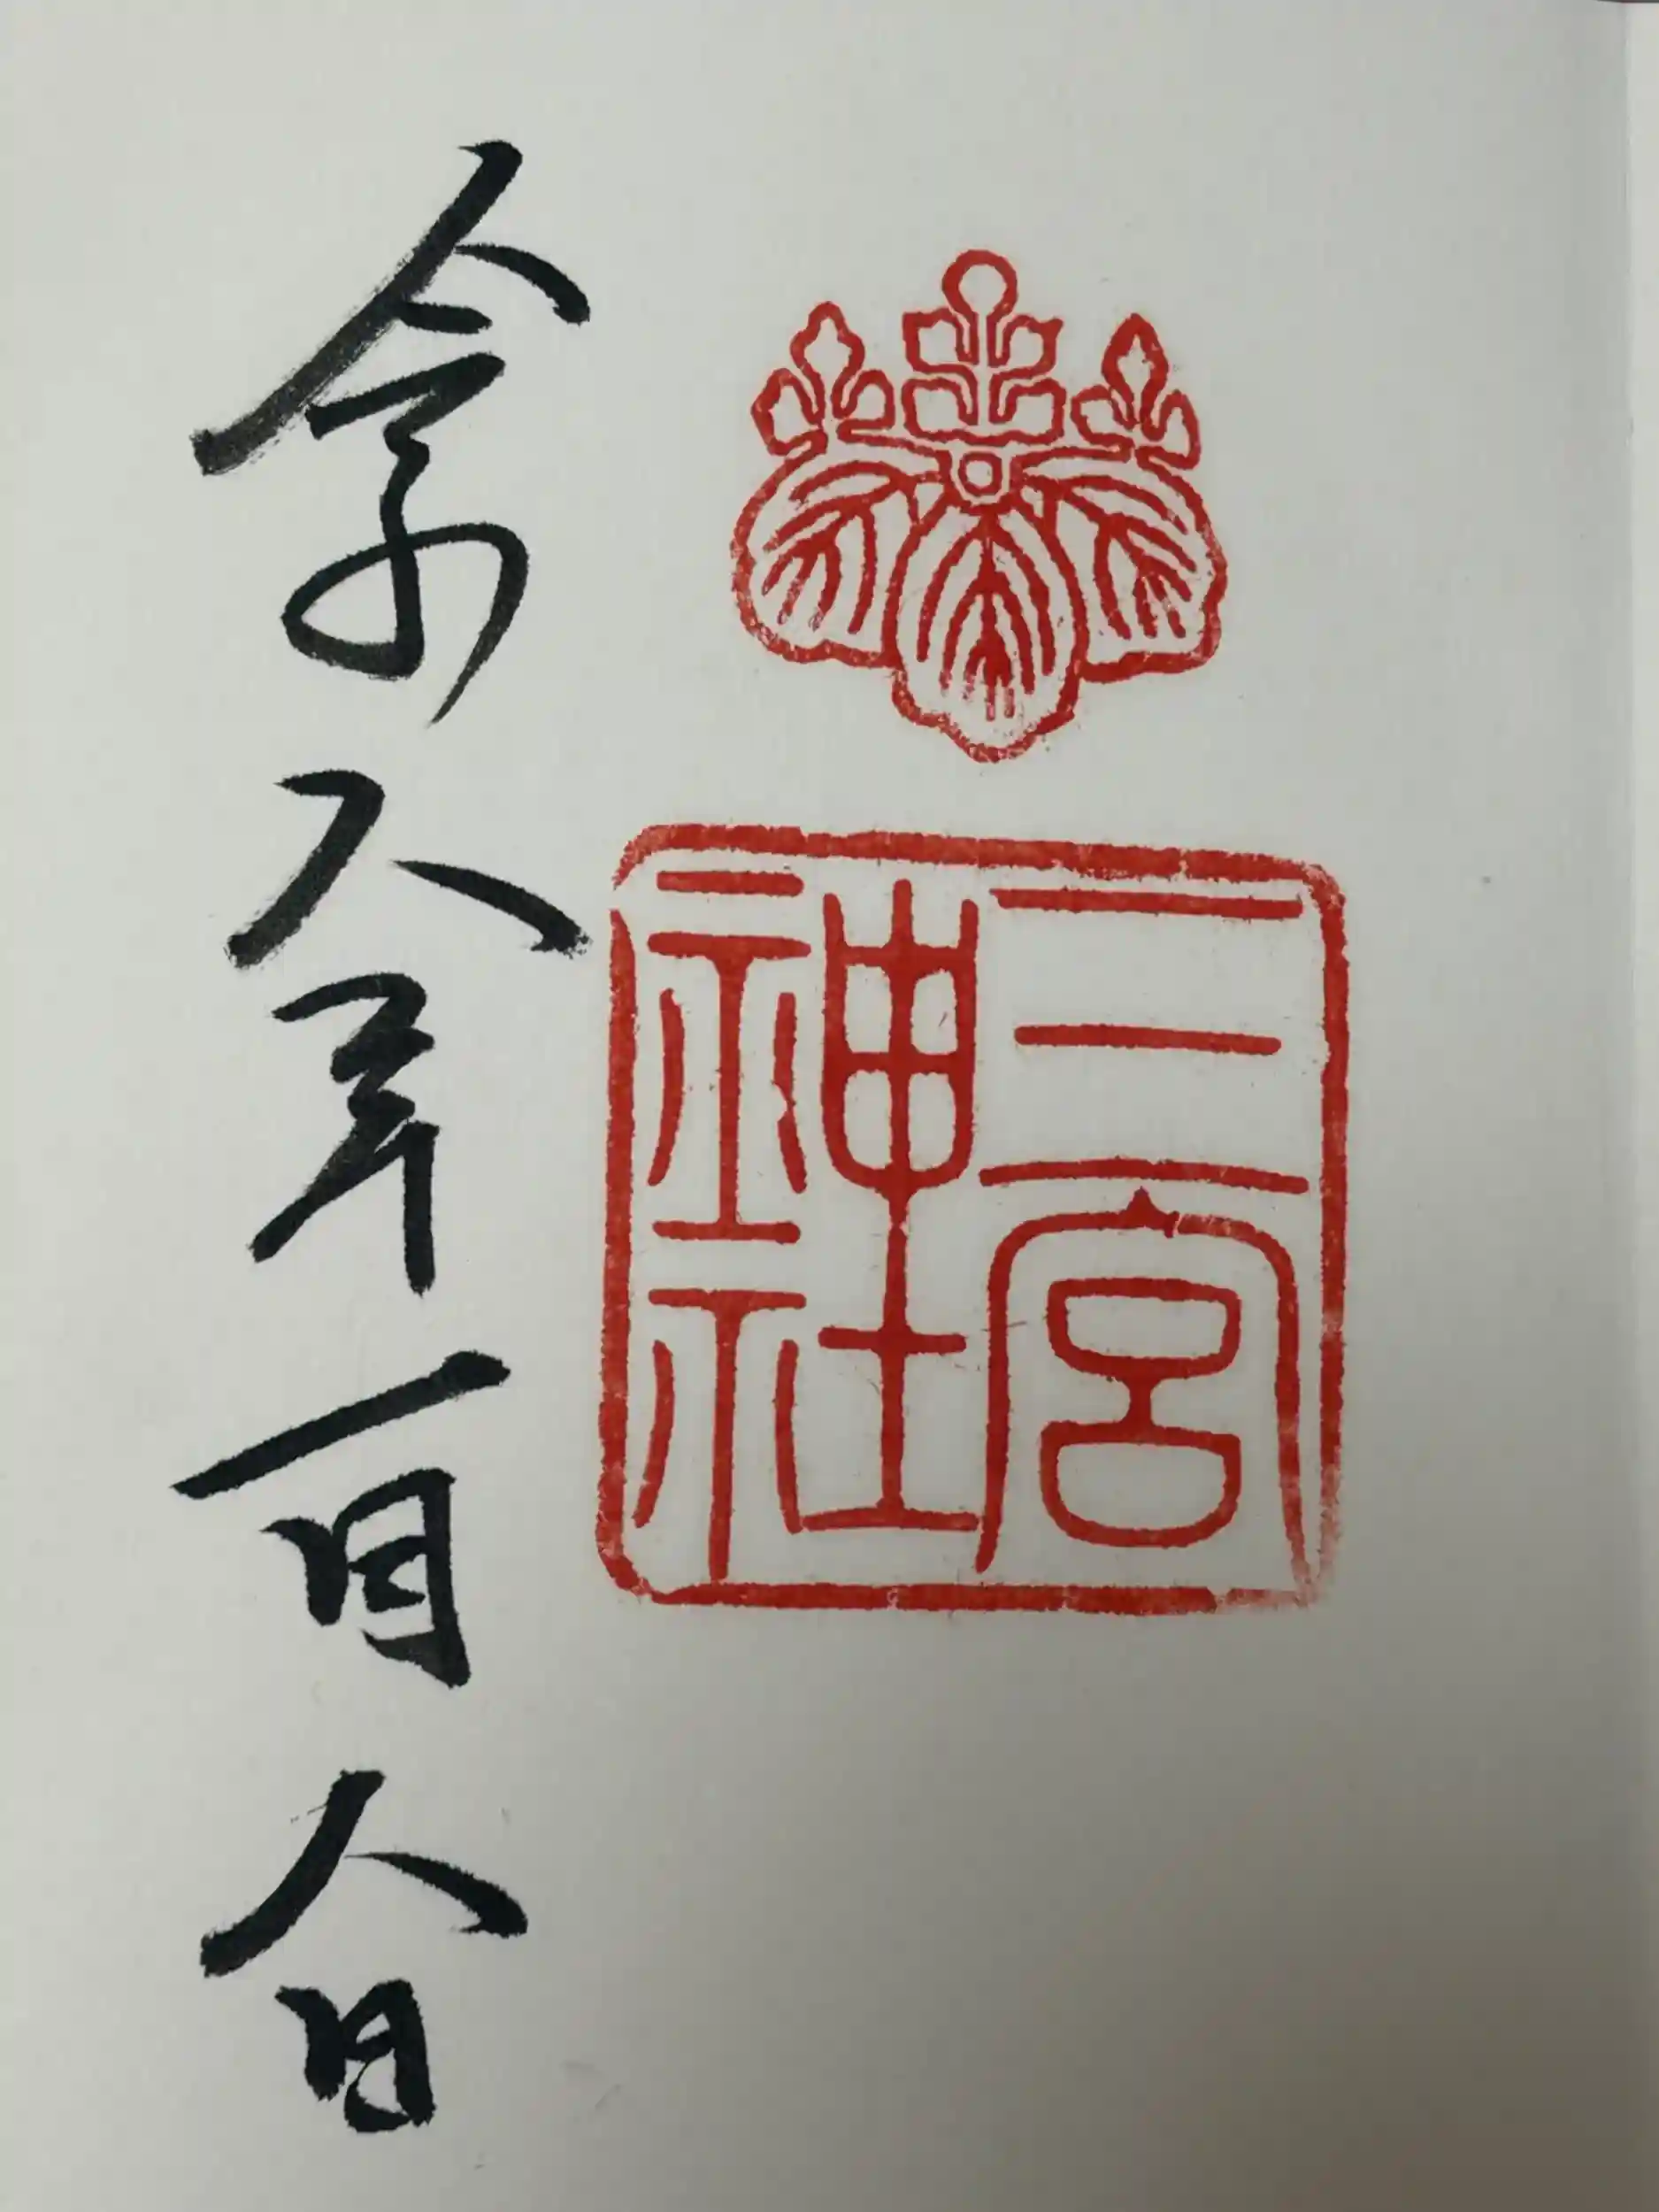 三宮
神社
令和八年一月八日